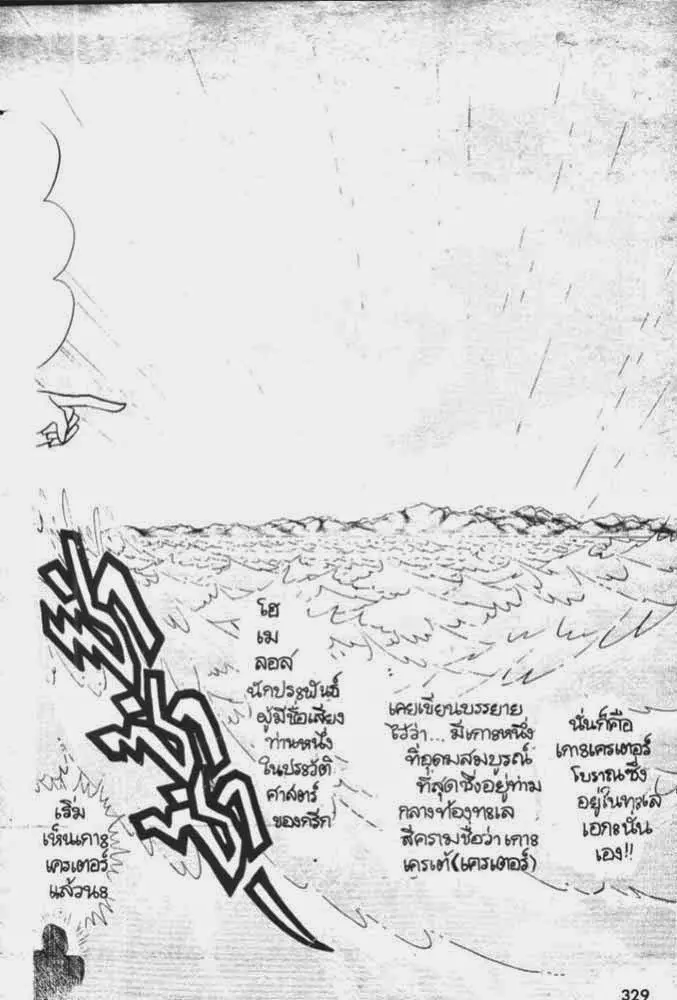 โฮ
เม
ลอส
นักประพันธ์
ผู้มีชื่อเสียง
ท่านหนึ่ง
ในประวัติ
ศาสตร์
ของกรีก
เคยเขียนบรรยาย
ไว้ว่า... มีเกาะหนึ่ง
ที่อุดมสมบูรณ์
ที่สุดซึ่งอยู่ท่าม
กลางท้องทะเล
สีครามชื่อว่าเกาะ
เครเต้(เครเตอร์)
นั่นก็คือ
เกาะเครเตอร์
โบราณซึ่ง
อยู่ในทะเล
เอกะนั่น
เอง!!
เริ่ม
เห็นเกาะ
เครเตอร์
แล้วนะ
ซ่า
ซ่า
ซ่า
329